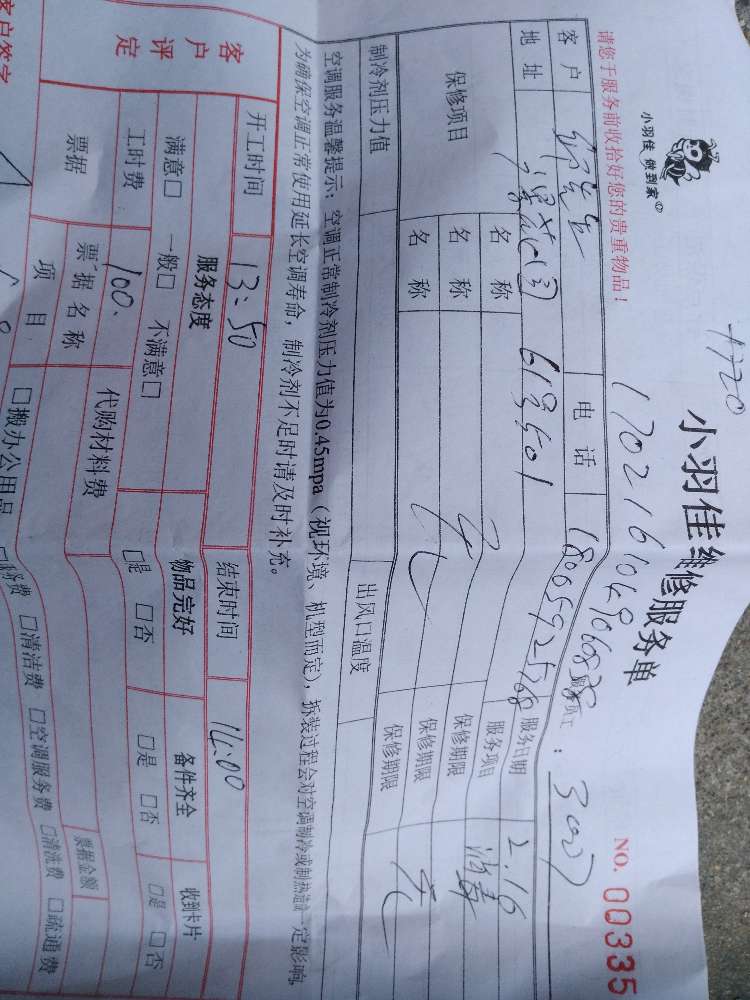 小羽佳 做到家
小羽佳维修服务单
NO. 00335
请您于服务前收拾好您的贵重物品！
客户
电话
服务日期 2.16
地址
61号501
服务项目 消毒
保修项目
名称
保修期限
名称
保修期限
名称
保修期限
无
无
制冷剂压力值
出风口温度
空调服务温馨提示：空调正常制冷剂压力值为0.45mpa（视环境、机型而定），拆装过程会对空调制冷或制热造
定影响
为确保空调正常使用延长空调寿命，制冷剂不足时请及时补充。
开工时间 13:50
结束时间 14:00
客户评定
服务态度
物品完好
备件齐全
收到卡片
满意□ 一般□ 不满意□
□是 □否
□是 □否
□是 □否
工时费 100.
代购材料费
票据
票据名称
票据金额
项目
□搬办公用品
□清洁费 □空调服务费 □清洗费 □疏通费
客户签字